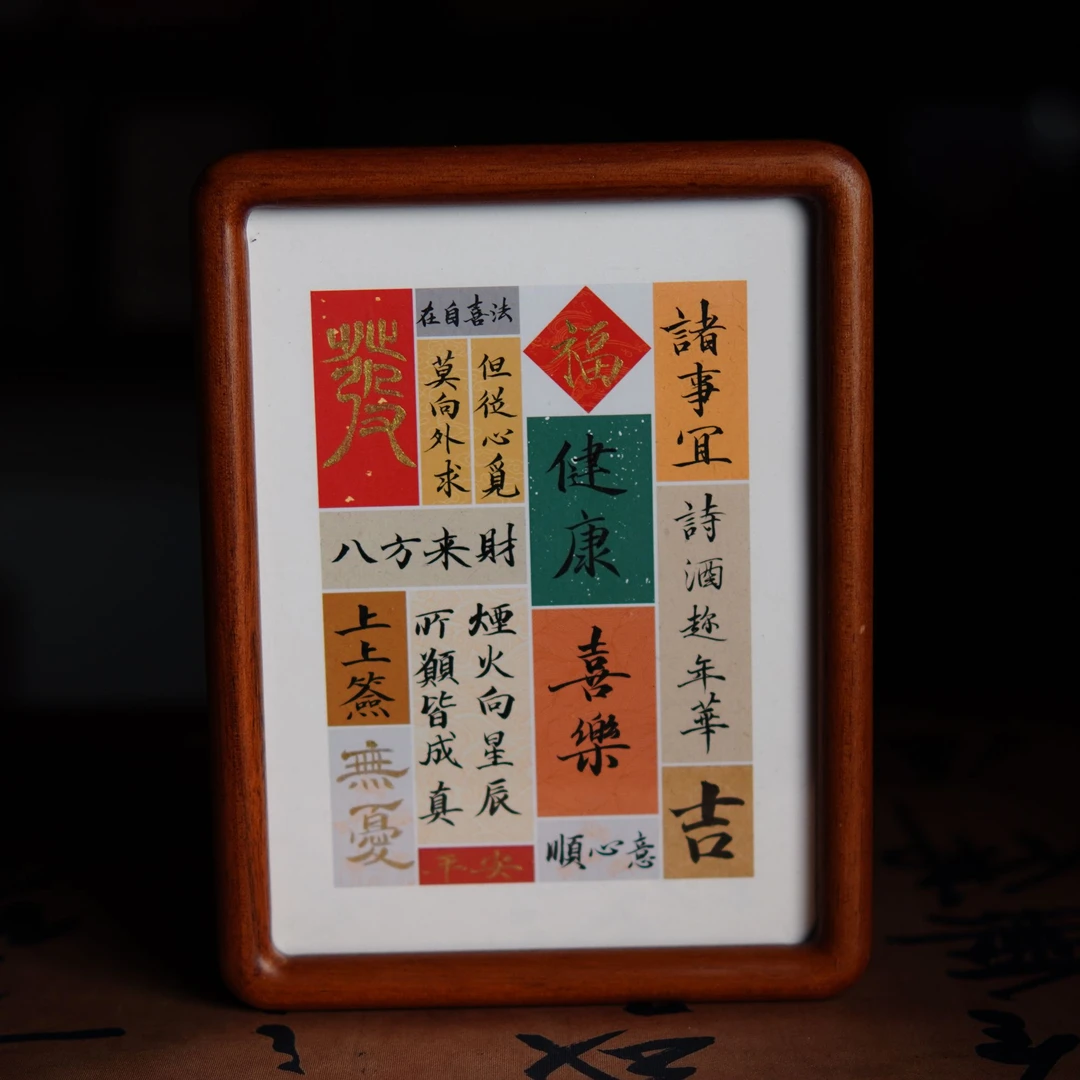 發
在自喜法
但從心覓
莫向外求
福
諸事宜
健康
八方来財
詩酒趁年華
上上簽
煙火向星辰
所願皆成真
喜樂
無憂
平安
順心意
吉